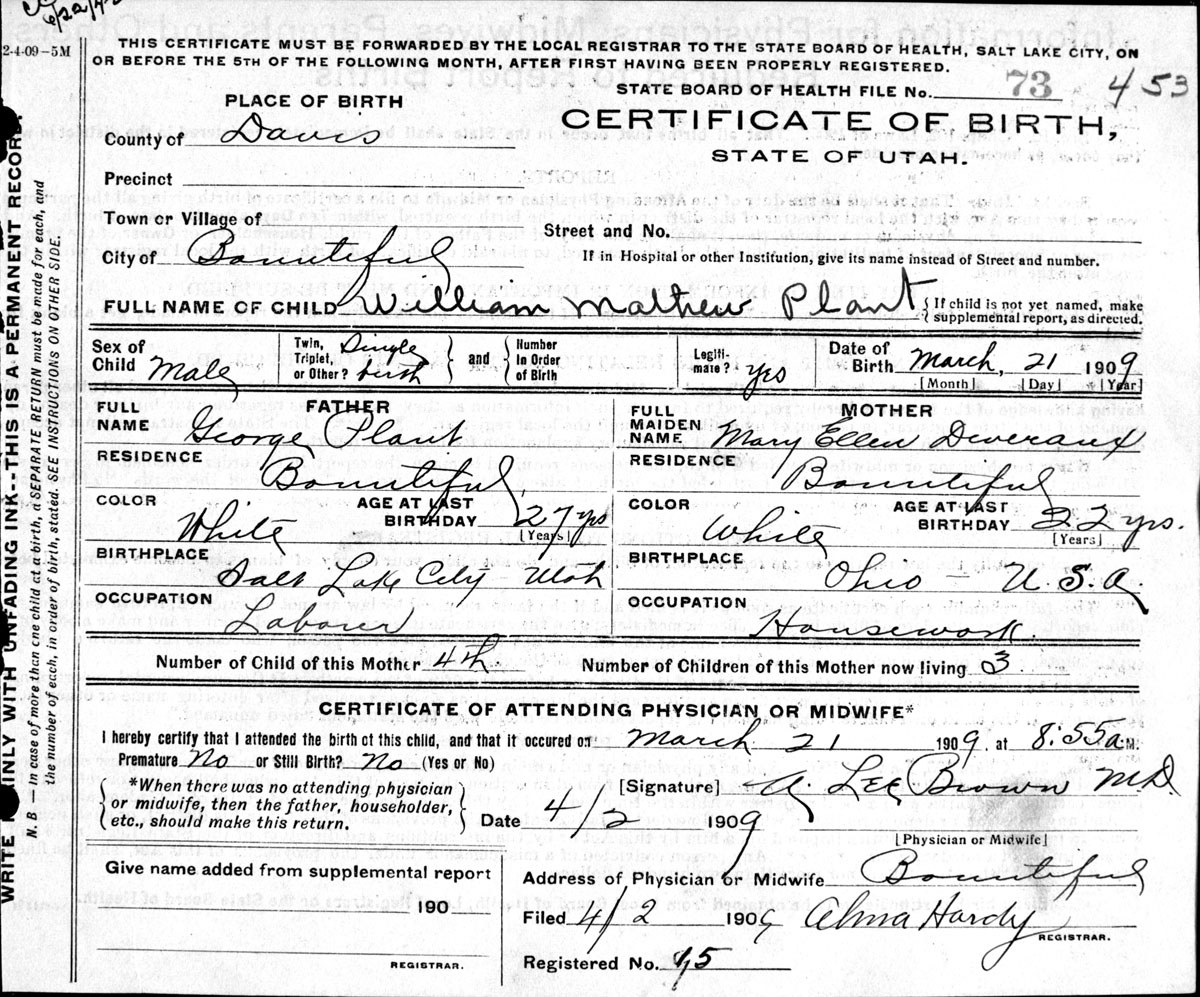 6/22/42
2-4-09-5M
THIS CERTIFICATE MUST BE FORWARDED BY THE LOCAL REGISTRAR TO THE STATE BOARD OF HEALTH, SALT LAKE CITY, ON
OR BEFORE THE 5TH OF THE FOLLOWING MONTH, AFTER FIRST HAVING BEEN PROPERLY REGISTERED.
STATE BOARD OF HEALTH FILE No. 73 453
PLACE OF BIRTH
CERTIFICATE OF BIRTH,
STATE OF UTAH.
County of Davis
Precinct
Town or Village of
Street and No.
City of Bountiful
If in Hospital or other Institution, give its name instead of Street and number.
FULL NAME OF CHILD William Mathew Plant { If child is not yet named, make
supplemental report, as directed.
Sex of Child Male
Twin, Triplet, or Other? Single birth } and { Number In Order of Birth
Legitimate? yes
Date of Birth March, 21 1909
[Month] [Day] [Year]
FATHER
FULL NAME George Plant
RESIDENCE Bountiful,
COLOR White AGE AT LAST BIRTHDAY 27 yrs
[Years]
BIRTHPLACE Salt Lake City - Utah
OCCUPATION Laborer
MOTHER
FULL MAIDEN NAME Mary Ellen Deveraux
RESIDENCE Bountiful
COLOR White AGE AT LAST BIRTHDAY 22 yrs.
[Years]
BIRTHPLACE Ohio - U.S.A.
OCCUPATION Housework.
Number of Child of this Mother 4th Number of Children of this Mother now living 3
CERTIFICATE OF ATTENDING PHYSICIAN OR MIDWIFE*
I hereby certify that I attended the birth of this child, and that it occured on March 21 1909 at 8:55 a.M.
Premature No or Still Birth? No (Yes or No)
*When there was no attending physician
or midwife, then the father, householder,
etc., should make this return.
[Signature] Lee Brown M.D.
Date 4/2 1909
[Physician or Midwife]
Give name added from supplemental report
190
REGISTRAR.
Address of Physician or Midwife Bountiful
Filed 4/2 1909 Alma Hardy
REGISTRAR.
Registered No. 15
WRITE PLAINLY WITH UNFADING INK--THIS IS A PERMANENT RECORD.
N. B.- In case of more than one child at a birth, a SEPARATE RETURN must be made for each, and
the number of each, in order of birth, stated. SEE INSTRUCTIONS ON OTHER SIDE.